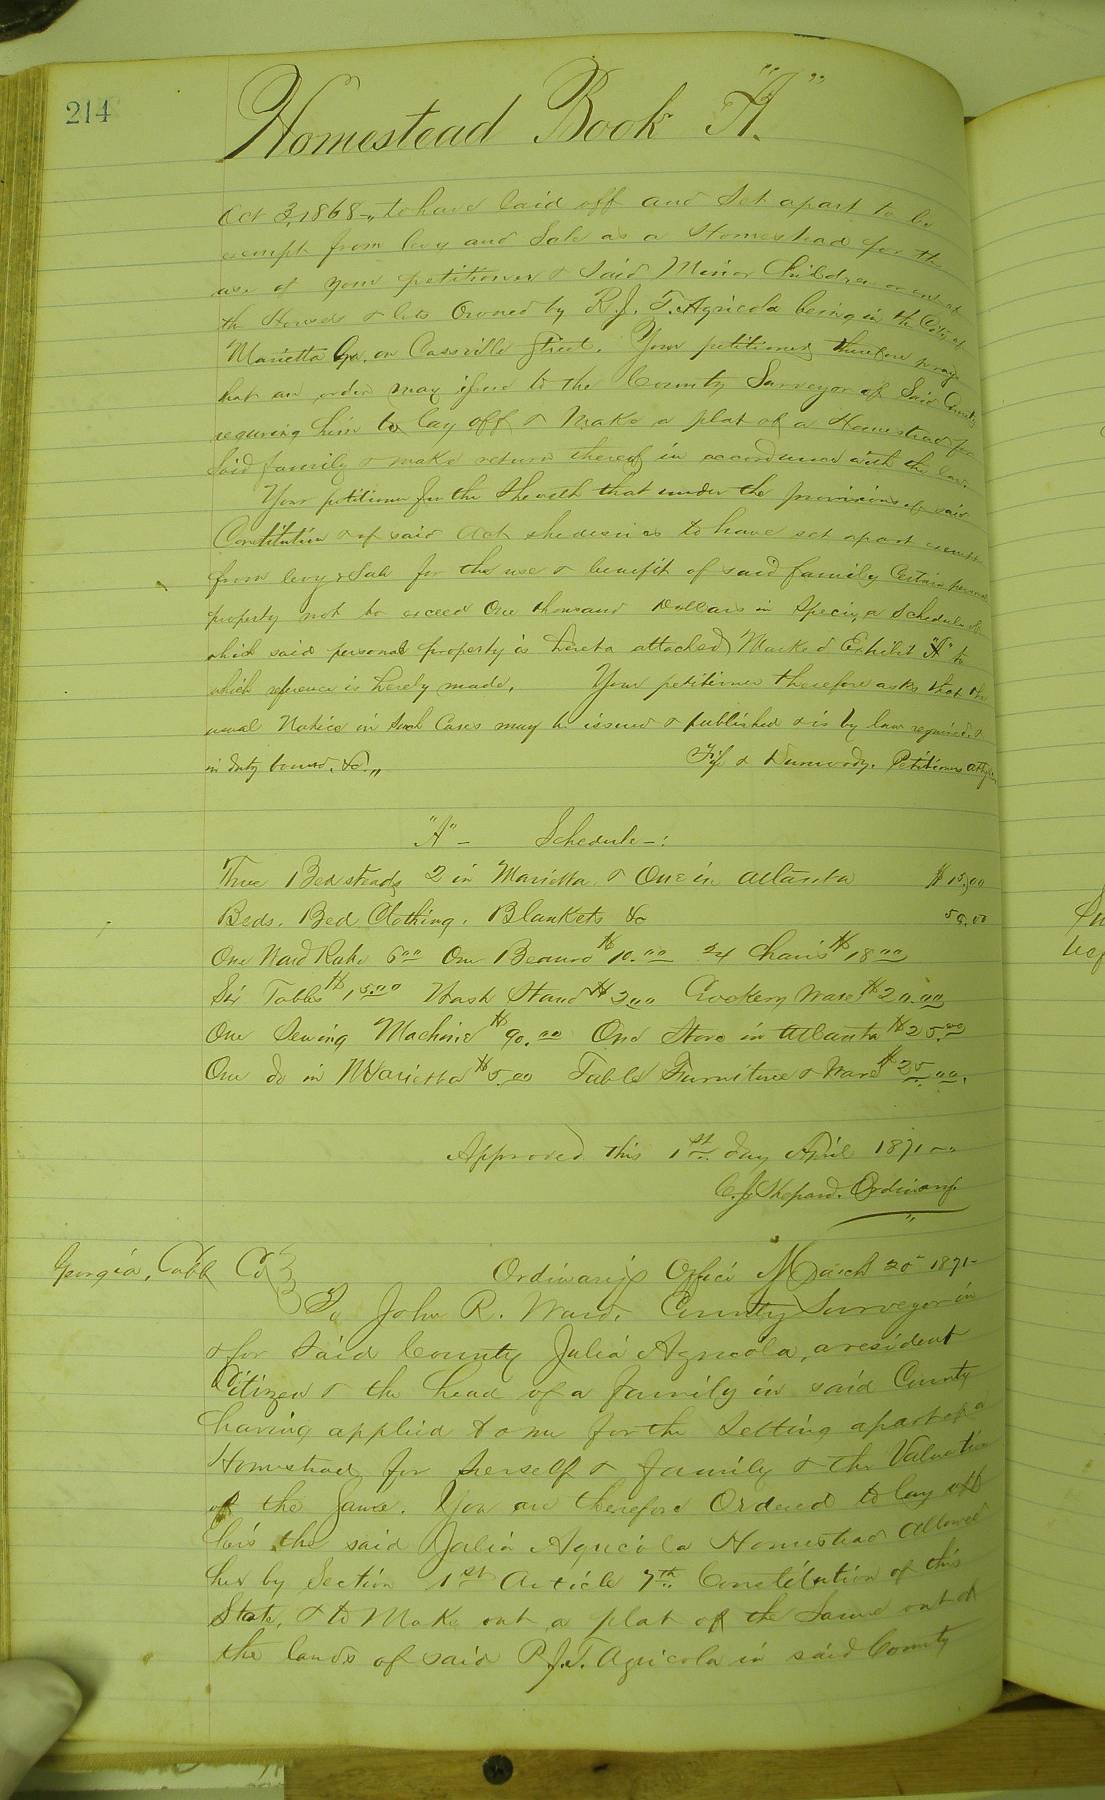 214
Homestead Book "A"
Oct 3, 1868 to have laid off and Set apart to be
exempt from levy and Sale as a Homestead for the
use of your petitioner & Said Minor Children out of
the Houses & lots Owned by R. J. T. Agricola being in the City of
Marietta Ga. on Cassville Street. Your petitioner therefore prays
that an order may issue to the County Surveyor of Said County
requiring him to lay off & Make a plat of a Homestead for
Said family & make return thereof in accordance with the law.
Your petitioner further Sheweth that under the provisions of said
Constitution & of said Act she desires to have set apart exempt
from levy & Sale for the use & benefit of said family Certain personal
property not to exceed One thousand Dollars in Specie, a Schedule of
which said personal property is hereto attached Marked Exhibit "A" to
which reference is hereby made. Your petitioner therefore asks that the
usual Notice in Such Cases may be issued & published as is by law required &
in duty bound &c. & Dunwody. Petitioners Attys
"A" - Schedule -:
Three Bedsteads 2 in Marietta & One in Atlanta $15.00
Beds. Bed Clothing. Blankets &c 50.00
One Ward Robe 6.00 One Beaureo $10.00 24 Chairs $18.00
Six Tables $15.00 Wash Stand $3.00 Crockery Ware $20.00
One Sewing Machine $90.00 One Stove in Atlanta $25.00
One do in Marietta $5.00 Table Furniture & Ware $25.00.
Approved this 1st day April 1871
C. J. Shepard. Ordinary
Georgia, Cobb Co Ordinary's Office March 20 1871
To John R. Ward. County Surveyor in
& for Said County Julia Agricola, a resident
Citizen & the head of a family in said County
having applied to me for the Setting apart of a
Homestead for herself & family & the Valuation
of the Same. You are therefore Ordered to lay off
the said Julia Agricola Homestead Allowed
her by Section 1st Article 7th Constitution of this
State, & to Make out a plat of the Same out of
the lands of said R. J. T. Agricola in said County